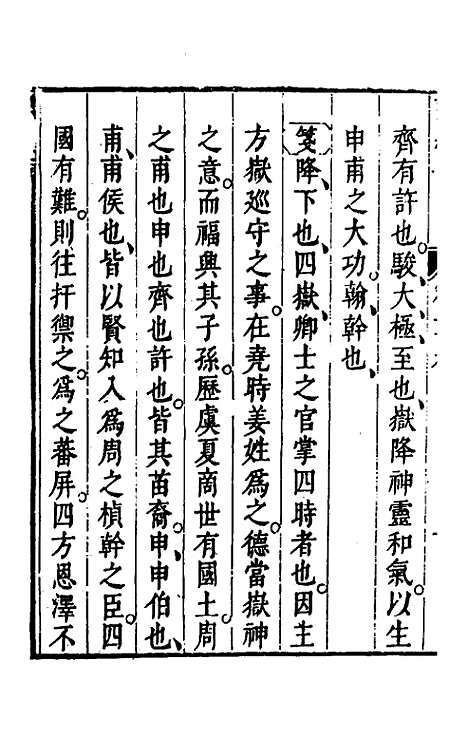 齊有許也。駿、大極、至也、嶽降神靈和氣。以生
申甫之大功。翰、幹也、
箋降、下也、四嶽、卿士之官掌四時者也。因主
方嶽巡守之事。在堯時姜姓爲之。德當嶽神
之意。而福興其子孫。歷虞夏商世有國土。周
之甫也申也齊也許也。皆其苗裔。申、申伯也、
甫、甫侯也、皆以賢知入爲周之楨幹之臣。四
國有難。則往扞禦之。爲之蕃屏。四方恩澤不